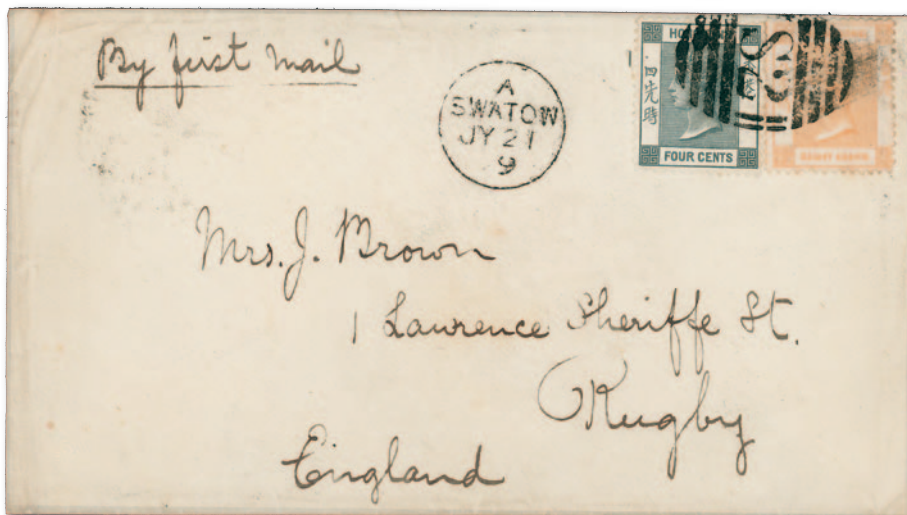 By first mail
A
SWATOW
JY 21
9
HO
四先時
FOUR CENTS
S
Mrs. J. Brown
1 Lawrence Sheriffe St.
Rugby
England